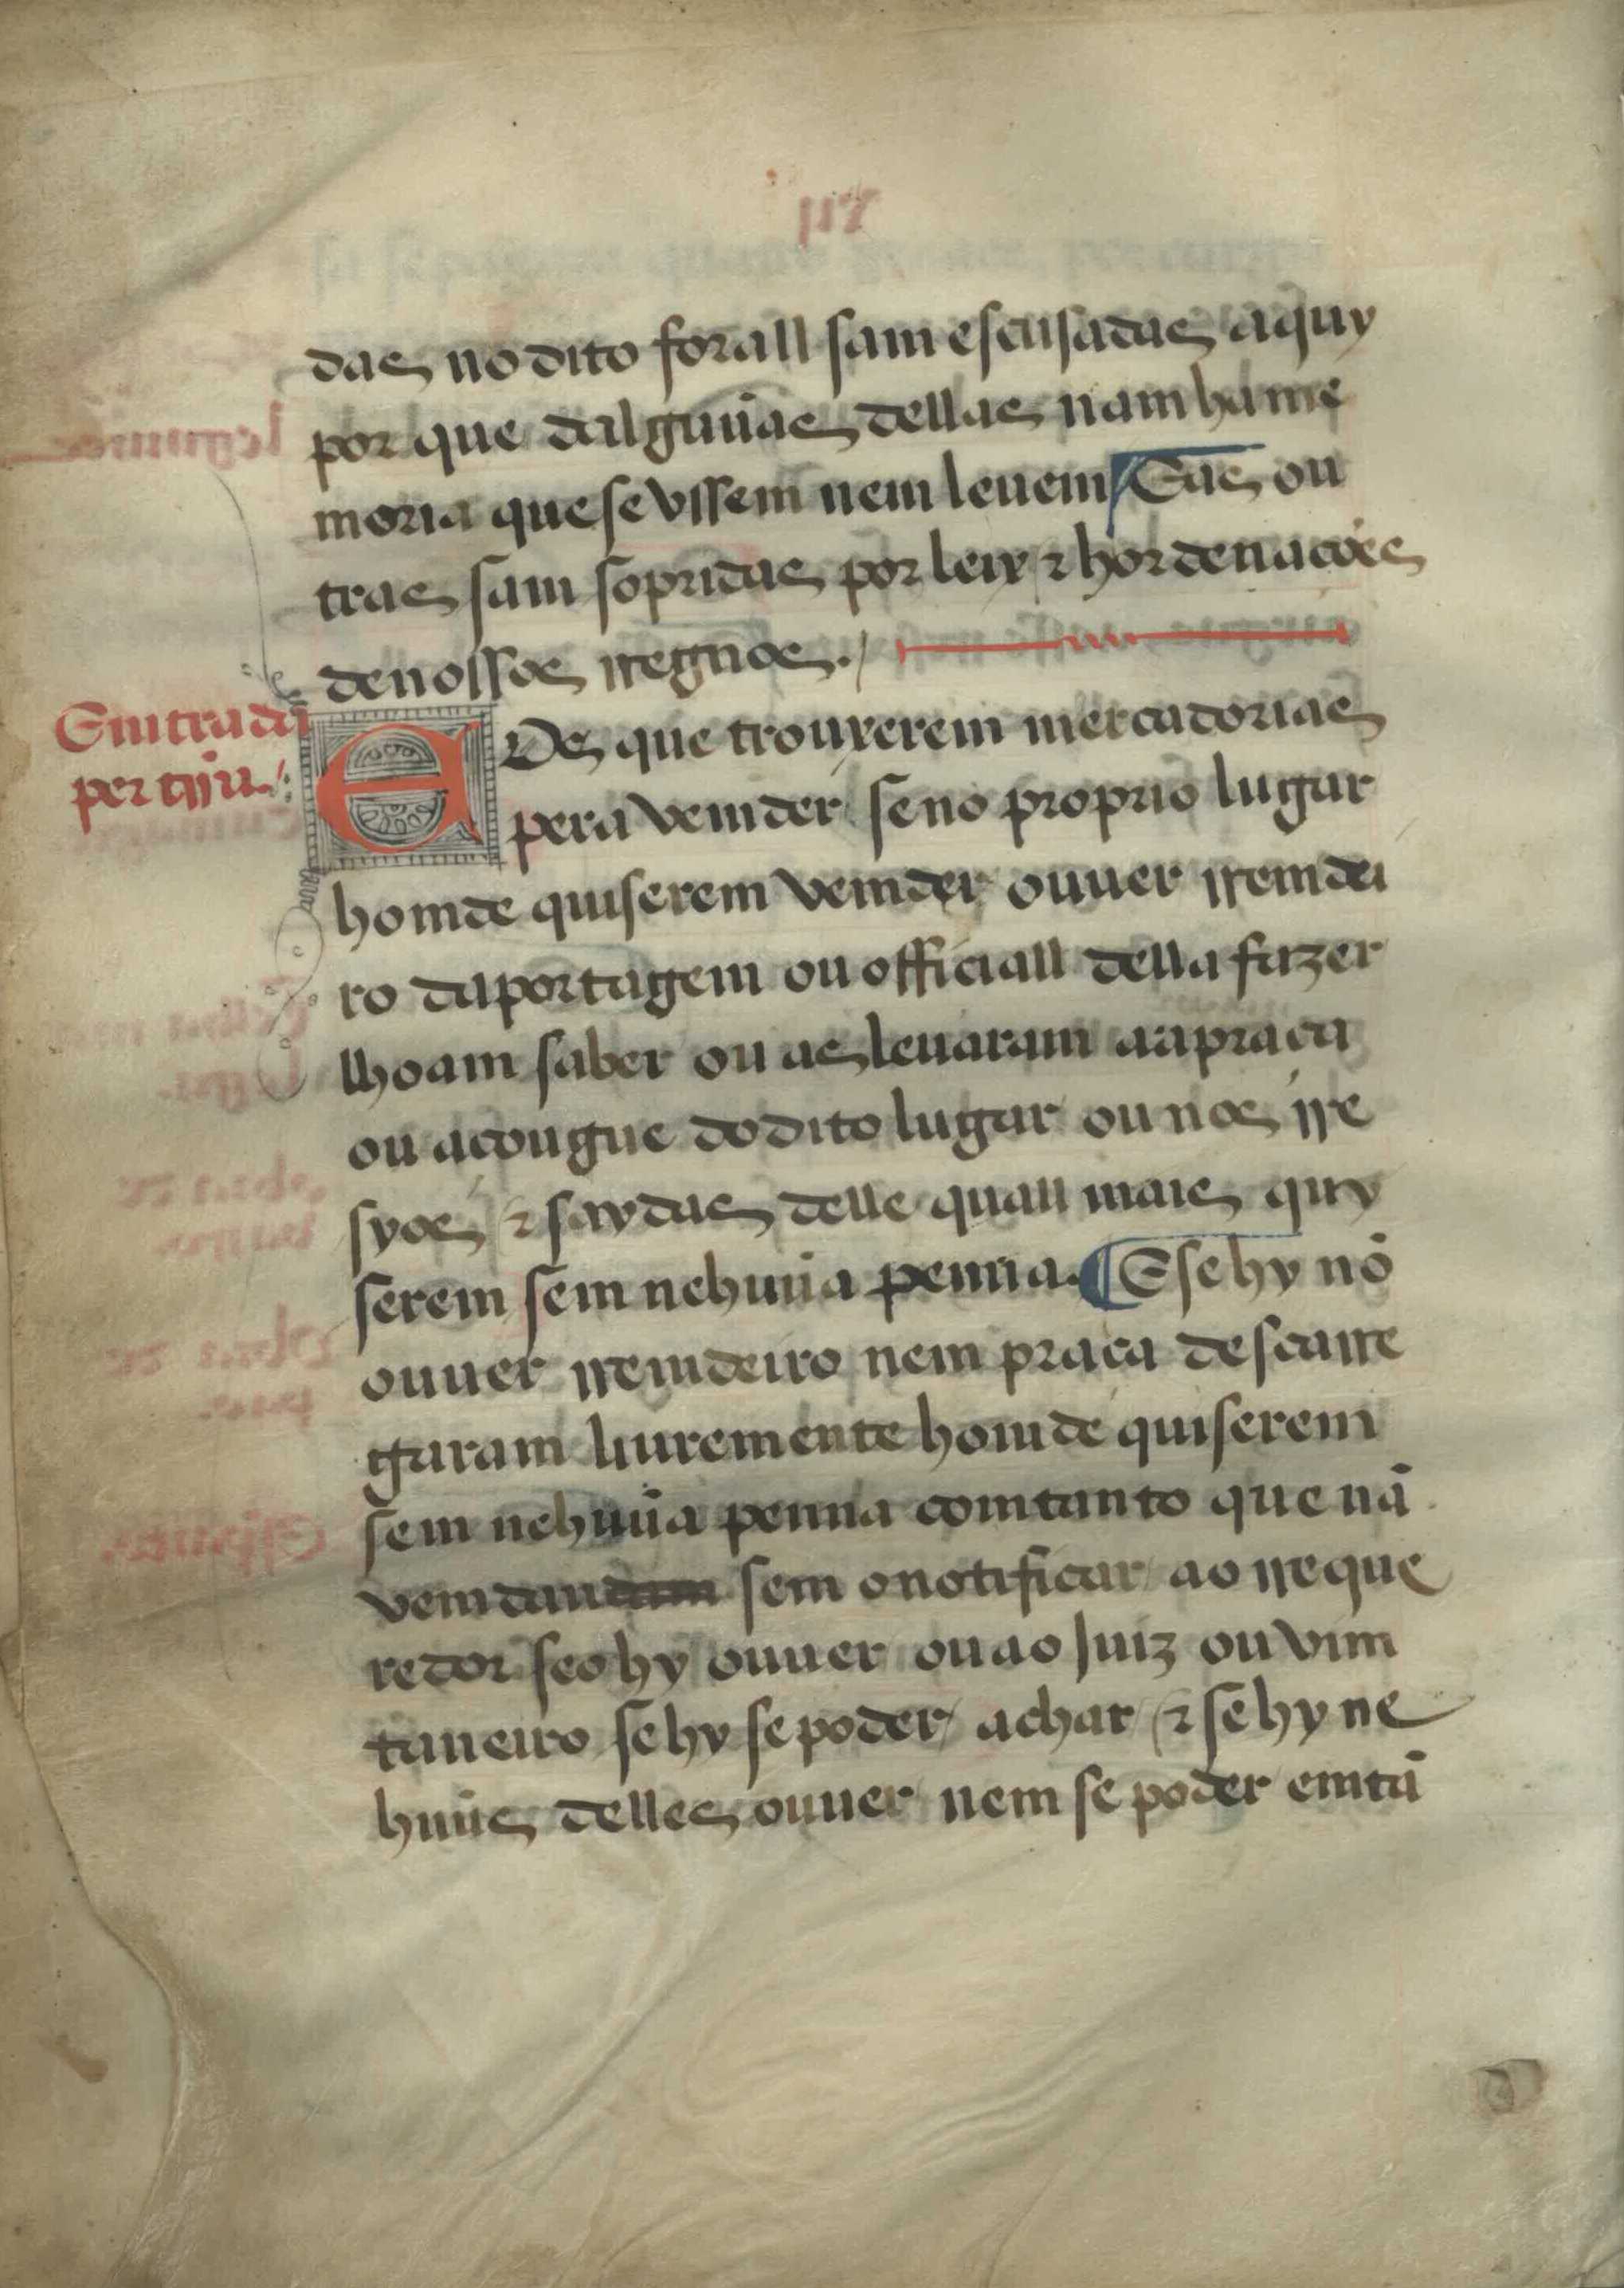 das no dito forall sam escusadas aquy
por que dalguũas dellas nam ha me
moria que se vssem nem leuem E as ou
tras sam sopridas por leix ⁊ hordenacoẽs
de nossos rregnos./
Emtrada
per trra./
E Os que trouxerem mercadorias
pera vemder se no proprio lugar
homde quiserem vemder ouuer rremdei
ro da portagem ou officiall della fazer
lhoam saber ou as leuaram aa praca
ou acougue do dito lugar ou nos rre
syos ⁊ saydas delle quall mais quy
serem sem nehuũa penna. ¶ E se hy nõ
ouuer rremdeiro nem praca descarre
garam liuremente homde quiserem
sem nehuũa penna comtanto que nã
vemdam sem o notificar ao rreque
redor se o hy ouuer ou ao Juiz ou vim
taneiro se hy se poder achar ⁊ se hy ne
huũs delles ouuer nem se poder emtã